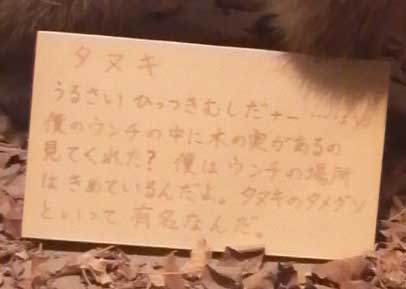 タヌキ
うるさいひっつきむしだナー……
僕のウンチの中に木の実があるの
見てくれた？僕はウンチの場所
はきめているんだよ。タヌキのタメグソ
といって有名なんだ。